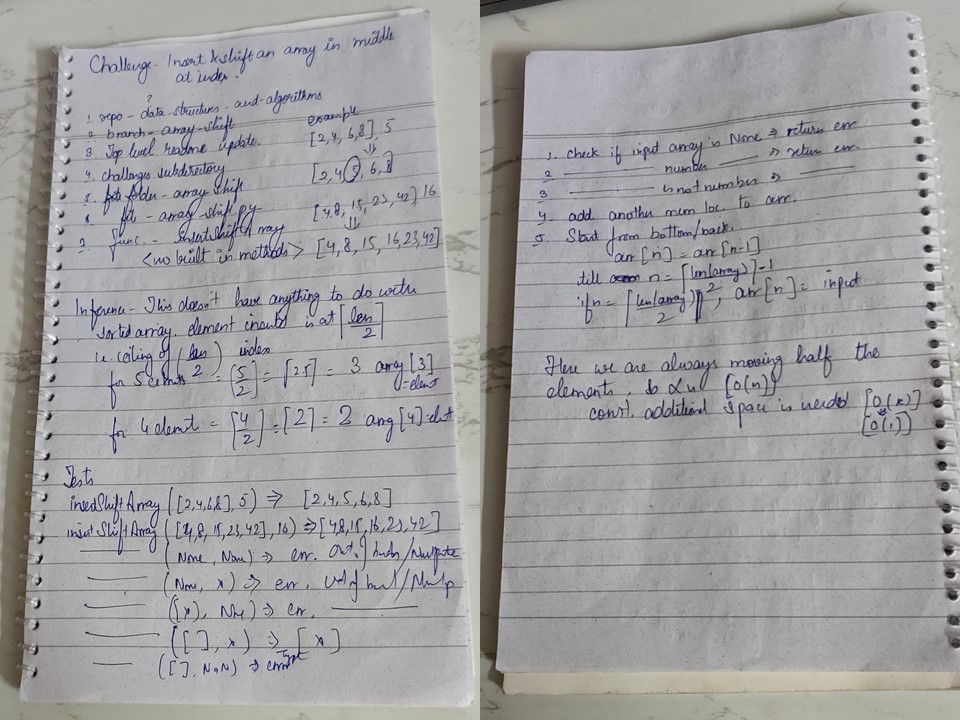 Challenge - Insert & shift an array in middle
at index.
?
1. repo - data-structures-and-algorithms
2 branch - array-shift
3 Top level readme update.
4. challenges subdirectory
5. folder - array shift
6. file - array-shift.py
7. func. - insertShiftArray
<no built in methods>
example
[2,4,6,8], 5
⇓
[2,4,5,6,8]
[4,8,15,23,42] 16
⇓
[4,8,15,16,23,42]
Inference - This doesn't have anything to do with
sorted array. element inserted is at ⌈len/2⌉
i.e. ceiling of (len/2) index
for 5 elements = ⌈5/2⌉ = ⌈2.5⌉ = 3 array[3] = elemt
for 4 elemt = ⌈4/2⌉ = ⌈2⌉ = 3 arry[4] = elmt
Tests
insertShiftArray ([2,4,6,8], 5) ⇒ [2,4,5,6,8]
insertShiftArray ([4,8,15,23,42], 16) ⇒ [4,8,15,16,23,42]
(None, None) ⇒ err. out of
(None, x) ⇒ err.
([x], None) ⇒ err.
([ ], x) ⇒ [x]
([ ], NaN) ⇒ err
1. check if input array is None ⇒ return err
2 number ⇒ return err.
3 is not number ⇒
4. add another mem loc. to arr.
5. Start from bottom/back.
arr[n] = arr[n-1]
till n = ⌈len(array)⌉-1
if n = ⌈len(array)/2⌉, arr[n] = input
Here we are always moving half the
elements, So αn [O(n)]
const. additional space is needed [O(k)]
[O(1)]